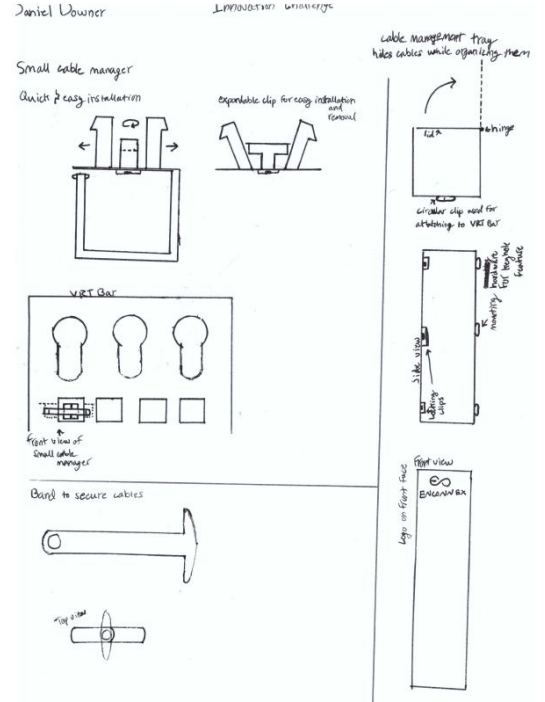 Daniel Downer
Innovation Challenge
Small cable manager
Quick & easy installation
expandable clip for easy installation
and
removal
VRT Bar
Front view of
small cable
manager
Band to secure cables
Top view
cable management tray
hides cables while organizing them
lid
hinge
circular clip used for
attatching to VRT Bar
mounting hardware
for keyhole
feature
Side view
Latching
clips
Front view
ENCONNEX
Logo on front face